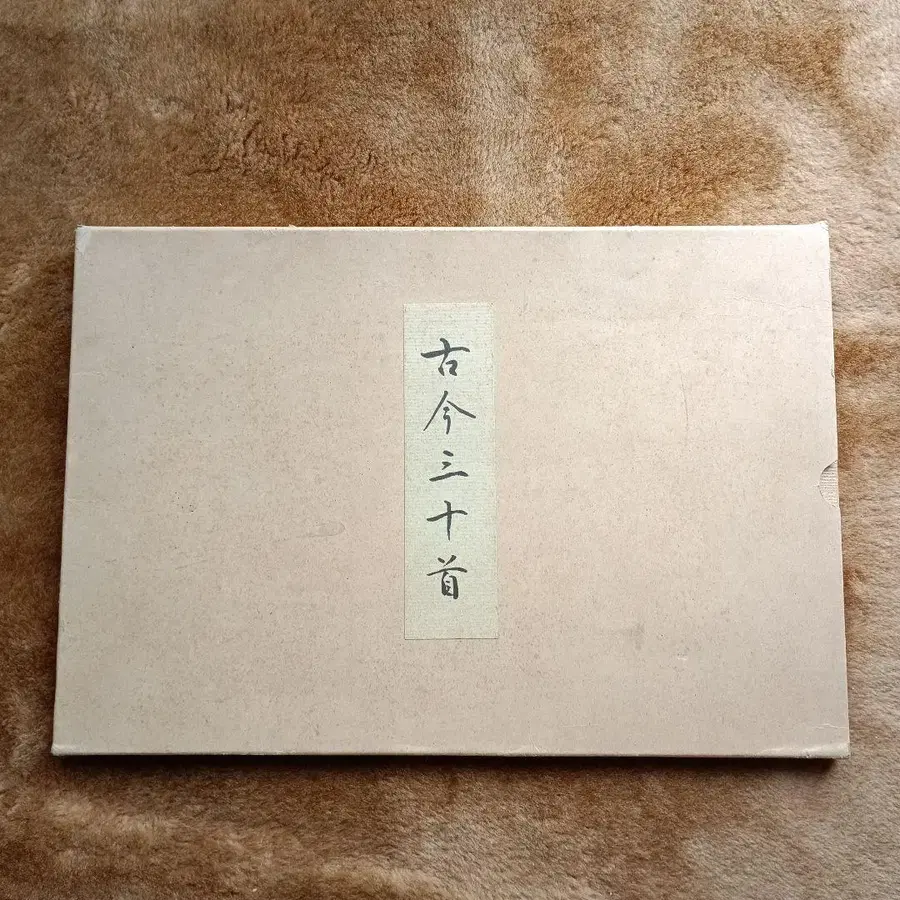 古今三十首